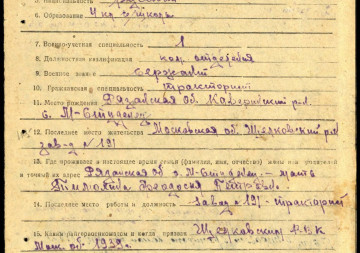 5. Национальность русский
6. Образование 4 кл. с. школы
7. Военно-учетная специальность 1
8. Должностная квалификация ком. отделения
9. Военное звание сержант
10. Гражданская специальность тракторист
11. Место рождения Рязанская об. р-н
с. М-
12. Последнее место жительства Московская об. Щелковский р-н
зав-д № 191
13. Где проживает в настоящее время семья (фамилия, имя, отчество) жены или родителей
и точный их адрес Рязанская об с. М- мать
14. Последнее место работы и должность завод № 191 - тракторист
15. Каким райвоенкоматом и когда призван Щелковским Р-В-К
Мос. об 1939 г.